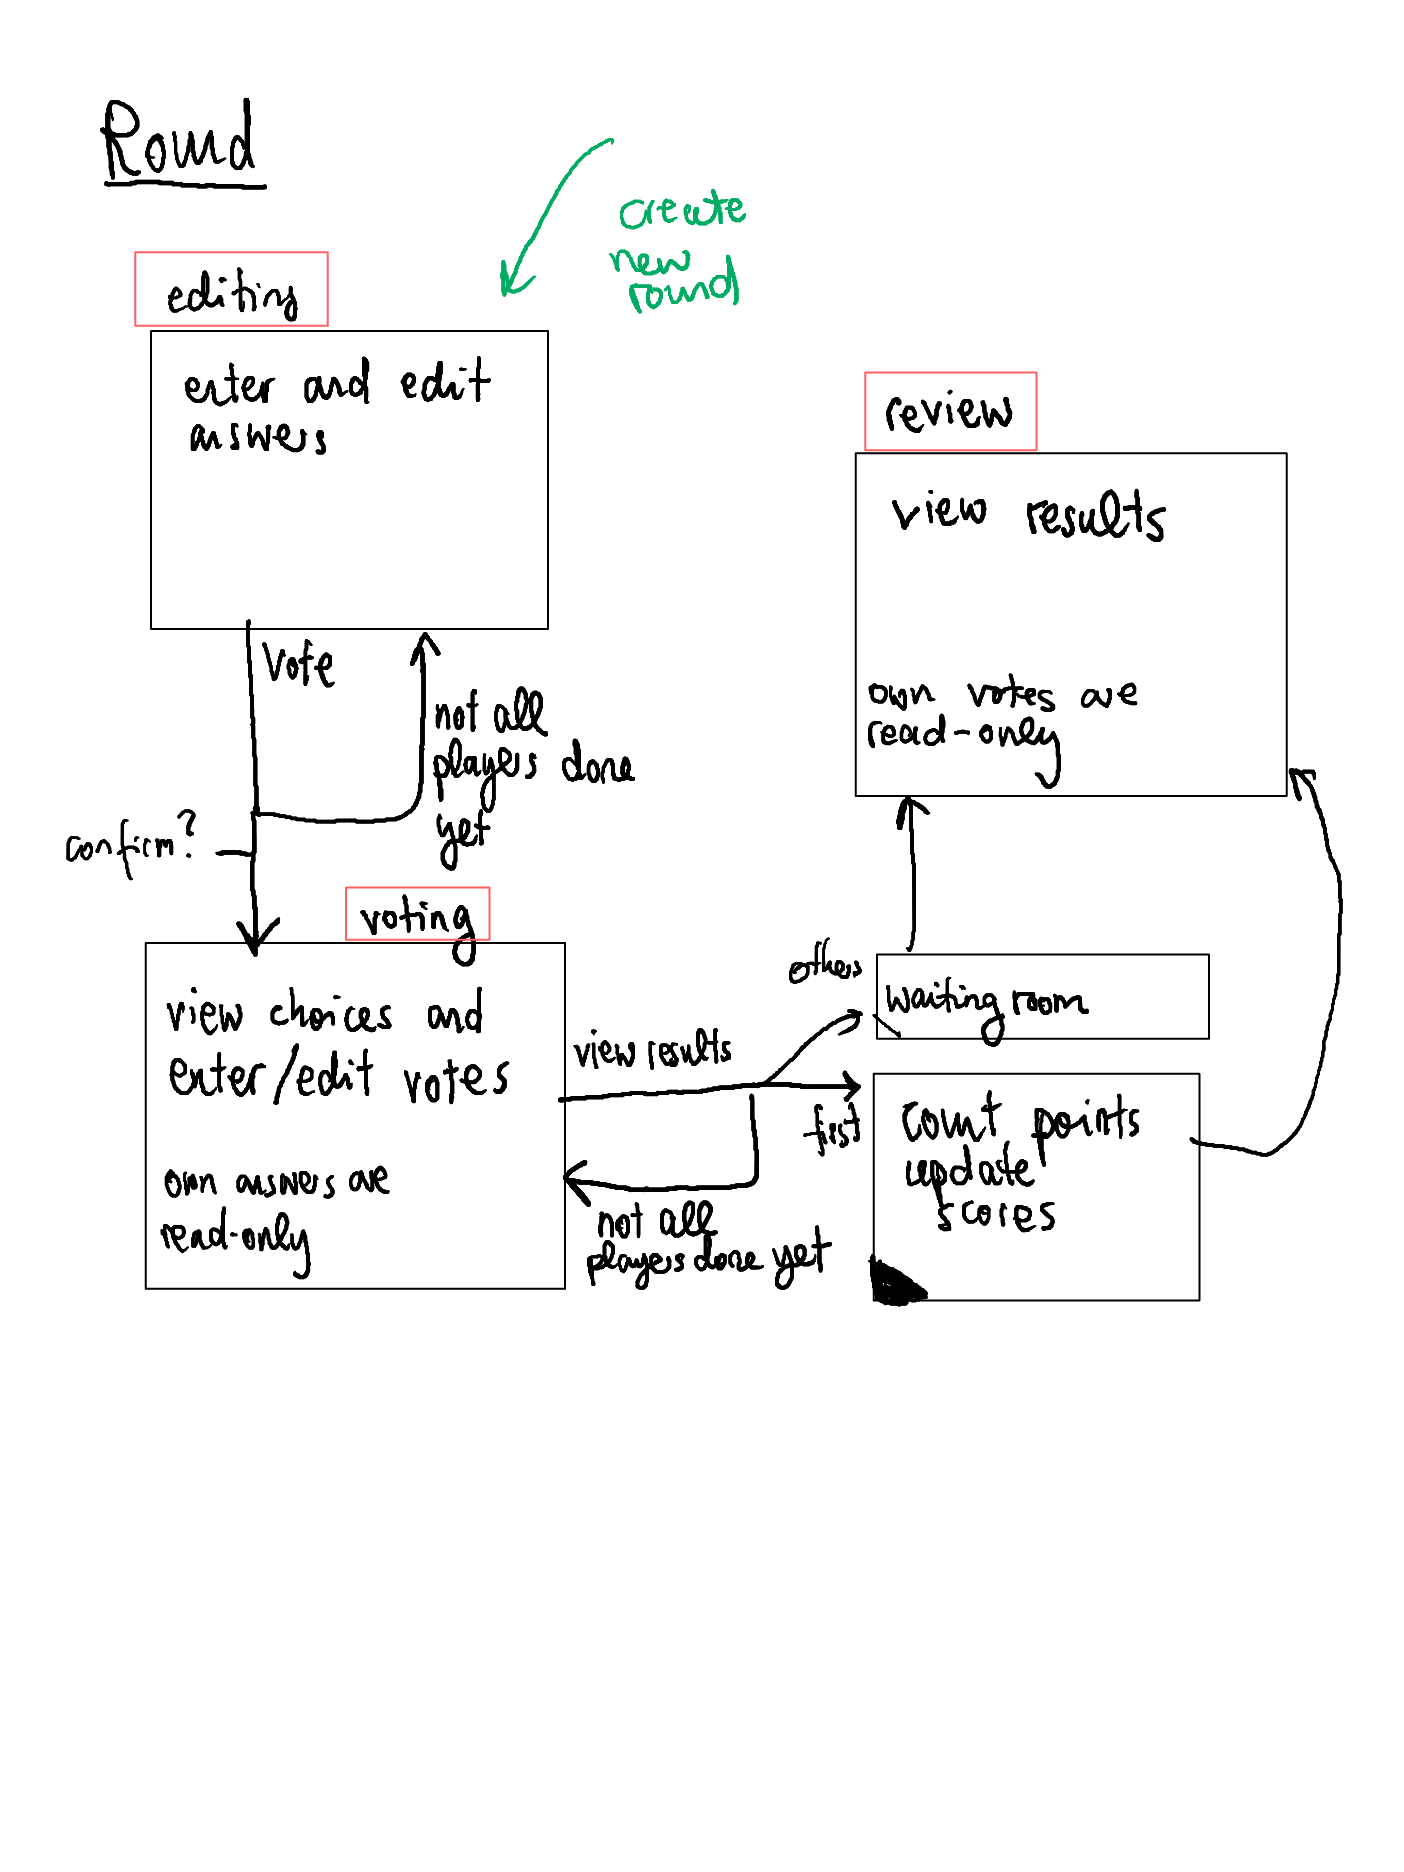 Round
create
new
round
editing
enter and edit
answers
Vote
not all
players done
yet
confirm?
voting
view choices and
enter/edit votes
own answers are
read-only
view results
not all
players done yet
others
first
waiting room
count points
update
scores
review
view results
own votes are
read-only